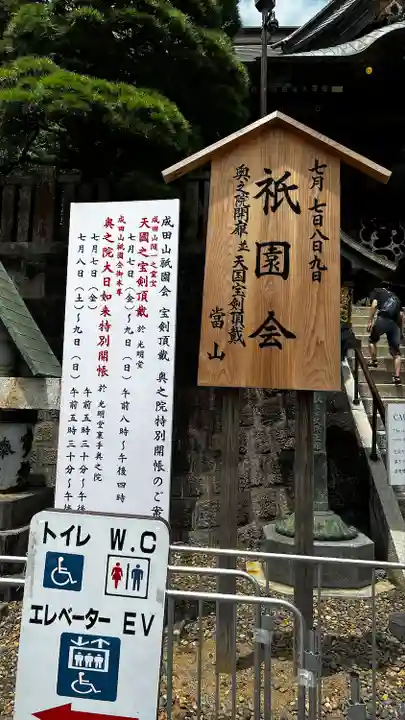 七月 七日八日九日
祇園会
奥之院開扉並天国宝剣頂戴
當山
成田山祇園会 宝剣頂戴 奥之院特別開帳のご案
成田山随一の霊宝
天國之宝剣頂戴 於 光明堂
七月七日(金)~九日(日) 午前八時~午後四時
成田山祇園会御本尊
奥之院大日如来特別開帳 於 光明堂裏手奥之院
七月七日(金) 午前五時三十分~午後
七月八日(土)~九日(日) 午前五時三十分~午
トイレ W.C
エレベーター EV